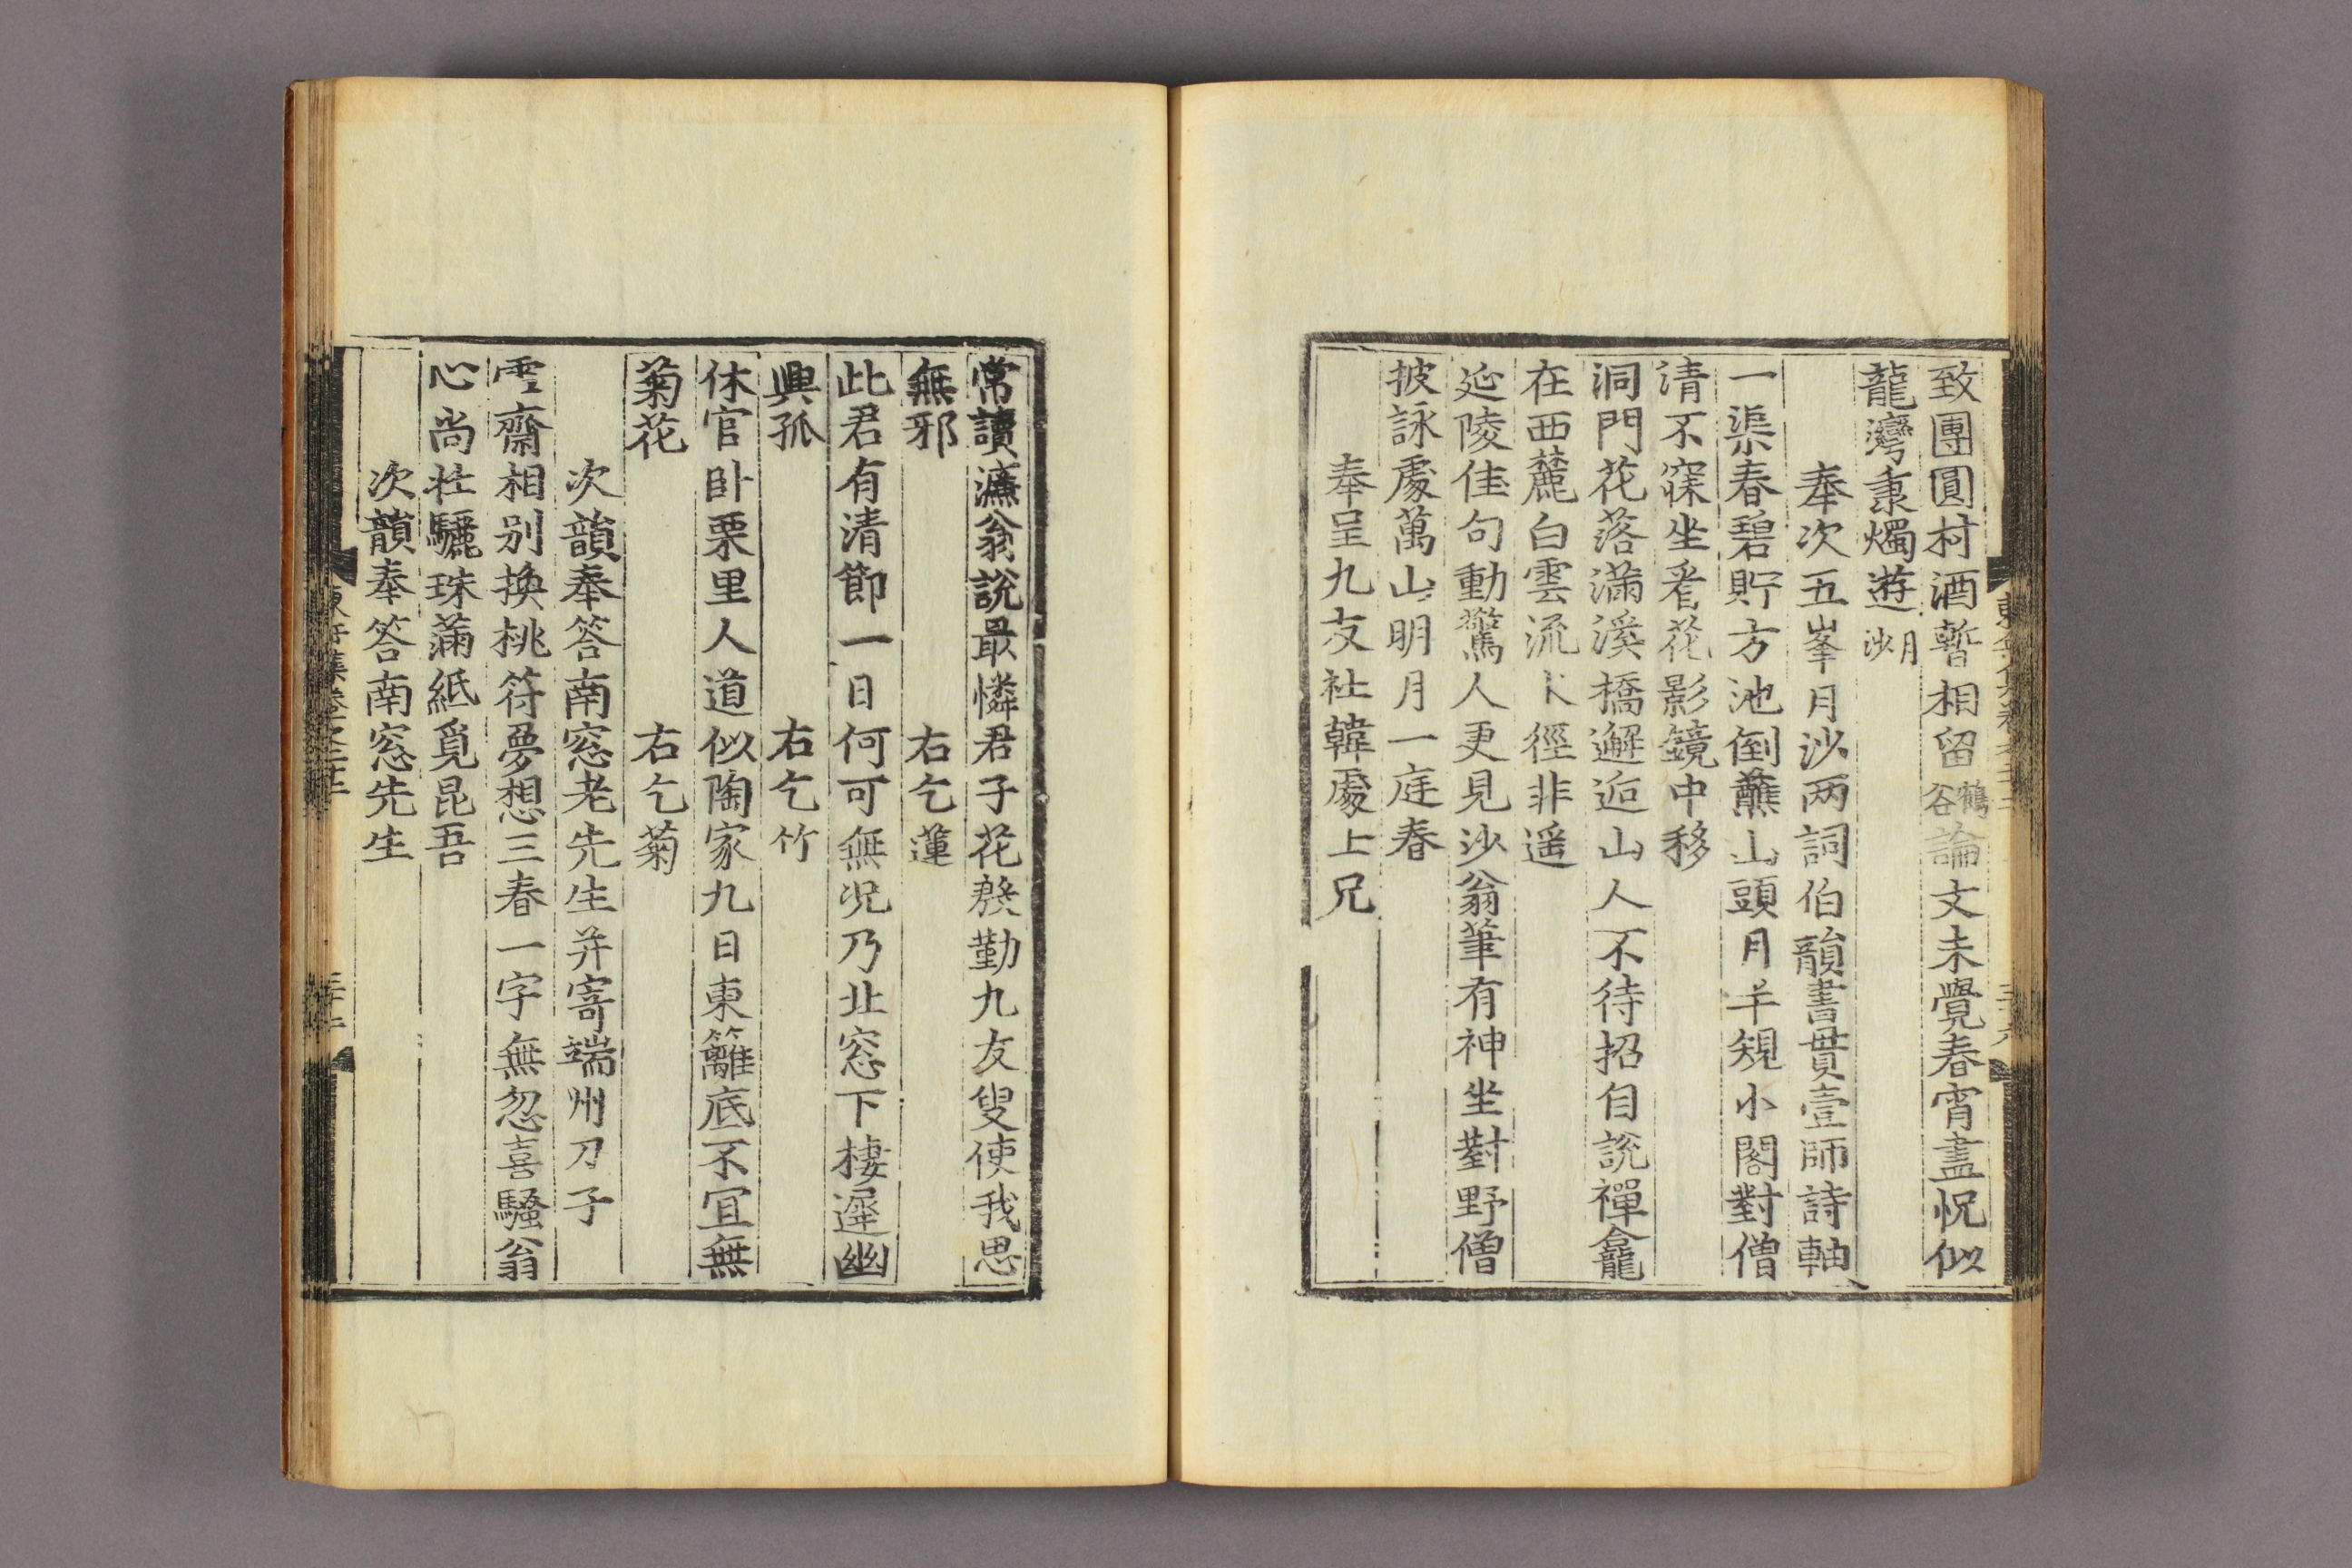 致團圓村酒暫相留鶴谷論文未覺春宵盡怳似
龍灣秉燭遊月沙
奉次五峯月沙两詞伯韻書贯壹師詩軸
一渠春碧貯方池倒蘸山頭月羊規小閣對僧
清不寐坐看花影鏡中移
洞門花落滿溪橋邂逅山人不待招自說禪龕
在西麓白雲流徑非遥
延陵佳句動驚人更見沙翁筆有神坐對野僧
披詠處萬山明月一庭春
奉呈九友社韓處上兄
常讀濂翁說最憐君子花慇勤九友叟使我思
無邪
右乞蓮
此君有清節一日何可無况乃北窓下棲遲幽
興孤
右乞竹
休官卧栗里人道似陶家九日東籬底不宜無
菊花
右乞菊
次韻奉答南窓老先生并寄端州刀子
雪齋相别換桃符夢想三春一字無忽喜騷翁
心尚壯驪珠滿紙覓昆吾
次韻奉答南窓先生